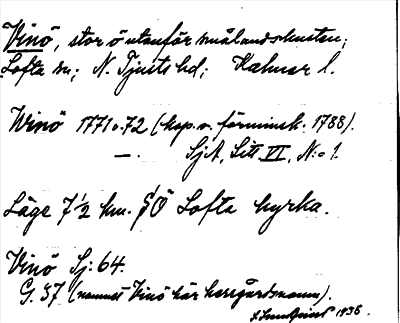 Vinö, stor ö utanför smålandskusten;
Lofta sn; N. Tjusts hd; Kalmar l.
Winö 1771 o. 72 (kop. o. förminsk. 1788).
—. SjA, Litt. VI, N:o 1.
Läge 7 1/2 km. SÖ Lofta kyrka.
Vinö Sj: 64.
G. 37 (namnet Vinö här herrgårdsnamn).
1936.